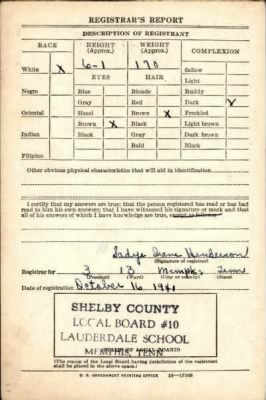 REGISTRAR'S REPORT
DESCRIPTION OF REGISTRANT
RACE HEIGHT (Approx.) WEIGHT (Approx.) COMPLEXION
White X 6-1 170 Sallow
EYES HAIR Light
Negro Blue Blonde Ruddy
Gray Red Dark X
Oriental Hazel Brown X Freckled
Brown X Black Light brown
Indian Black Gray Dark brown
Bald Black
Filipino
Other obvious physical characteristics that will aid in identification
I certify that my answers are true; that the person registered has read or has had
read to him his own answers; that I have witnessed his signature or mark and that
all of his answers of which I have knowledge are true, except as follows:
Sadye Jane Henderson
(Signature of registrar)
Registrar for 3 13 Memphis Tenn
(Precinct) (Ward) (City or county) (State)
Date of registration October 16, 1941
SHELBY COUNTY
LOCAL BOARD #10
LAUDERDALE SCHOOL
MEMPHIS, TENN
(STAMP OF LOCAL BOARD)
(The stamp of the Local Board having jurisdiction of the registrant
shall be placed in the above space.)
U. S. GOVERNMENT PRINTING OFFICE